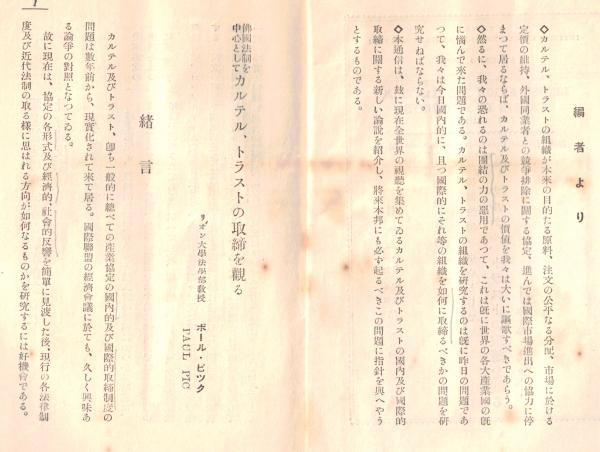 編者より
◇カルテル、トラストの組織が本來の目的たる原料、注文の公平なる分配、市場に於ける
定價の維持、外國同業者との競爭排除に關する協定、進んでは國際市場進出への協力に停
まつて居るならば、カルテル及びトラストの價値を我々は大いに謳歌すべきであらう。
◇然るに、我々の恐れるのは團結の力の惡用であつて、これは旣に世界の各大產業國の旣
に惱んで來た問題である。カルテル、トラストの組織を研究するのは旣に昨日の問題であ
つて、我々は今日國內的に、且つ國際的にそれ等の組織を如何に取締るべきかの問題を研
究せねばならない。
◇本通信は、玆に現在全世界の視聽を集めてゐるカルテル及びトラストの國內及び國際的
取締に關する新しい論說を紹介し、將來本邦にも必ず起るべきこの問題に指針を與へやう
とするものである。
佛國法制を
中心として
カルテル、トラストの取締を觀る
リオン大學法學部敎授
ポール・ピック
PAUL PIC
緖言
カルテル及びトラスト、卽ち一般的に總べての產業協定の國內的及び國際的取締制度の
問題は數年前から、現實化されて來て居る。國際聯盟の經濟會議に於ても、久しく興味あ
る論爭の對照となつてゐる。
故に現在は、協定の各形式及び經濟的、社會的反響を簡單に見渡した後、現行の各法律制
度及び近代法制の取る樣に思はれる方向が如何なるものかを研究するには好機會である。
1